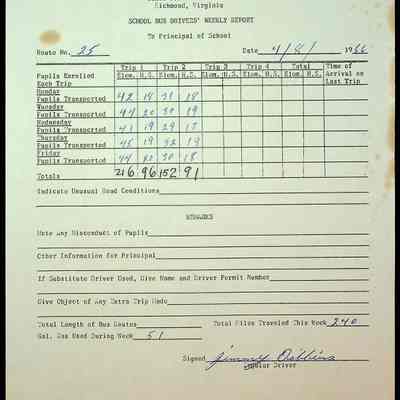 Richmond, Virginia
SCHOOL BUS DRIVERS' WEEKLY REPORT
To Principal of School
Route No. 25 Date 4/8/ 1966
Trip 1 Trip 2 Trip 3 Trip 4 Total Time of
Pupils Enrolled Elem. H.S. Elem. H.S. Elem. H.S. Elem. H.S. Elem. H.S. Arrival on
Each Trip Last Trip
Monday
Pupils Transported 42 18 31 18
Tuesday
Pupils Transported 44 20 30 19
Wednesday
Pupils Transported 41 19 29 17
Thursday
Pupils Transported 45 19 32 19
Friday
Pupils Transported 44 20 30 18
Totals 216 96 152 91
Indicate Unusual Road Conditions
REMARKS
Note Any Misconduct of Pupils
Other Information for Principal
If Substitute Driver Used, Give Name and Driver Permit Number
Give Object of Any Extra Trip Made
Total Length of Bus Routes Total Miles Traveled This Week 240
Gal. Gas Used During Week 51
Signed Jimmy Robbins
Regular Driver